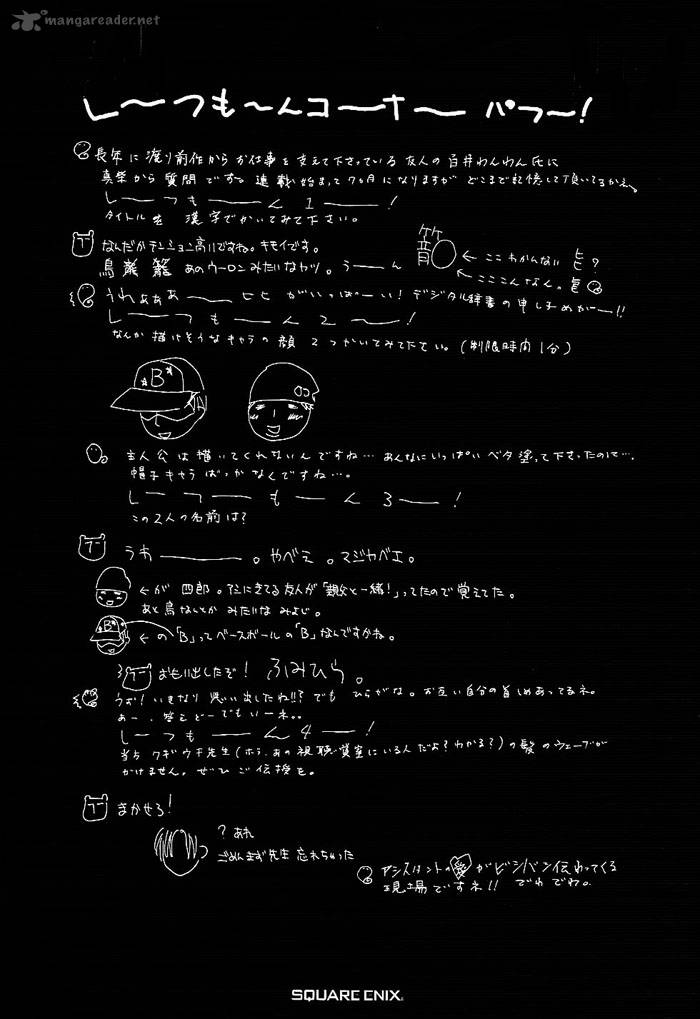 mangareader.net
し〜つも〜んコ―ナ― パフ〜!
長年に渡り前作からお仕事を支えて下さっている友人の百井わんわん氏に
質問です。連載始まって7カ月になりますがどこまで記憶して頂いてるかネ。
し〜つも〜ん 1―!
タイトルを漢字でかいてみて下さい。
なんだかテンション高いですね。キモイです。
あのウーロンみたいなヤツ。う――ん
←ここわかんない
←こここんなん。
うわぁぁぁ―― がいっぱーい! デジタル辞書の申し子めが―!!
し―つも―ん 2―!
なんか描けそうなキャラの顔2つかいてみて下さい。(制限時間1分)
B
主人公は描いてくれないんですね…あんなにいっぱいベタ塗って下さったのに…。
帽子キャラばっかなんですね…。
し―つ―も―ん 3―!
この2人の名前は?
うわ―――。やべえ。マジヤベエ。
←が 四郎。 友人が「親父と一緒!」ってたので覚えてた。
あと鳥なんとか みたいなみよじ。
←の「B」ってベースボールの「B」なんですかね。
おもい出したぞ! ふみひら。
うお!いきなり思い出したね!!?でもひらがな。お互い自分の首しめあってるネ。
あー、答えどーでもいーネ。
し―つも――ん 4―!
クギウチ先生(ホラ、あの視聴覚室にいる人だよ?わかる?)の髪のウェーブが
かけません。ぜひご伝授を。
まかせろ!
?あれ
ごめんまず先生忘れちゃった
アシスタントの愛がビシバシ伝わってくる
現場ですネ!! でわでわ。
SQUARE ENIX